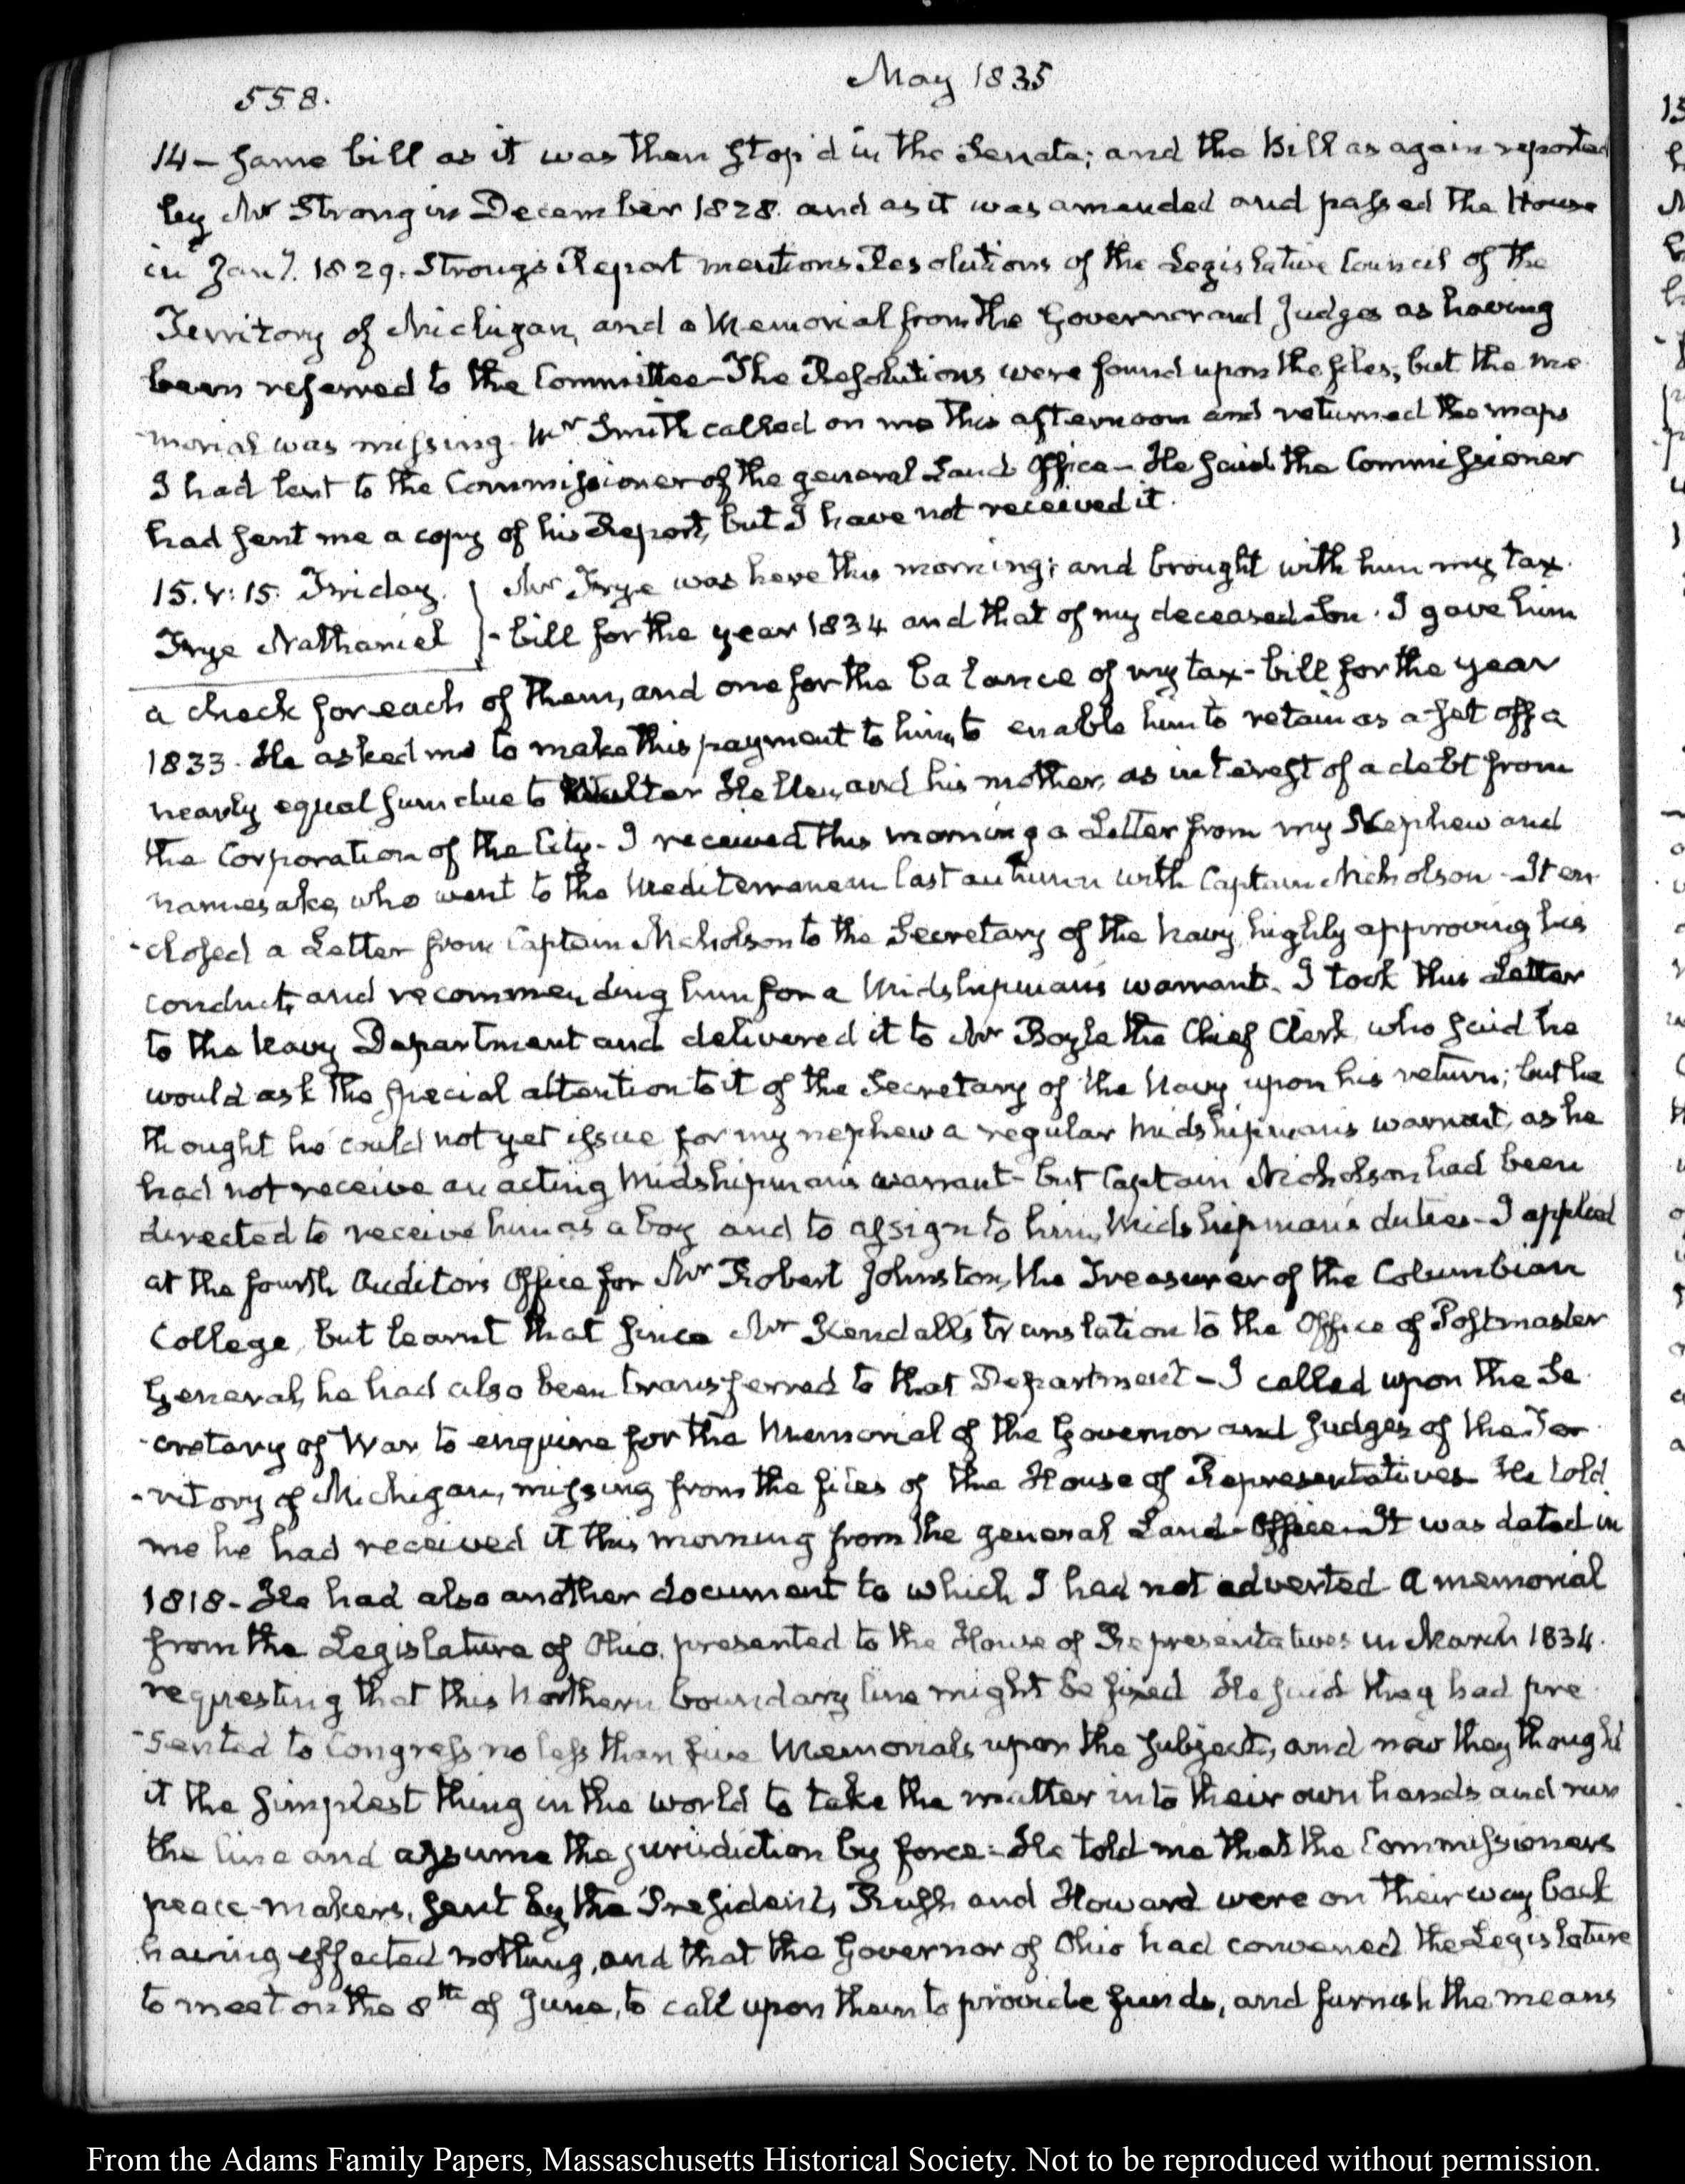 May 1835
558.
14 — same bill as it was then stop'd in the Senate; and the Bill as again reported
by Mr Strong in December 1828. and as it was amended and passed the House
in Jany. 1829. Strongs Report mentions Resolutions of the Legislative Council of the
Territory of Michigan, and a Memorial from the Governor and Judges as having
been referred to the Committee — The Resolutions were found upon the files, but the me
-morial was missing. Mr Smith called on me this afternoon and returned the maps
I had lent to the Commissioner of the general Land Office — He said the Commissioner
had sent me a copy of his Report, but I have not received it.
15. V: 15. Friday. } Mr Frye was here this morning; and brought with him my tax
Frye Nathaniel } - bill for the year 1834 and that of my deceased Son. I gave him
a check for each of them, and one for the balance of my tax-bill for the year
1833. He asked me to make this payment to him, to enable him to retain as a set off a
nearly equal sum due to Walter Hellen, and his mother, as interest of a debt from
the Corporation of the City - I received this morning a Letter from my Nephew and
namesake, who went to the Mediterranean last autumn with Captain Nicholson - It en
-closed a Letter from Captain Nicholson to the Secretary of the Navy, highly approving his
conduct, and recommending him for a Midshipman's warrant. I took this Letter
to the Navy Department and delivered it to Mr Boyle the Chief Clerk, who said he
would ask the special attention to it of the Secretary of the Navy upon his return; but he
thought he could not yet issue for my nephew a regular Midshipman's warrant, as he
had not receive an acting Midshipman's warrant - but Captain Nicholson had been
directed to receive him as a boy and to assign to him Midshipman's duties - I applied
at the fourth Auditors Office for Mr Robert Johnston, the Treasurer of the Columbian
College, but learnt that since Mr Kendall's translation to the Office of Postmaster
General, he had also been transferred to that Department - I called upon the Se
-cretary of War to enquire for the Memorial of the Governor and Judges of the Ter
-ritory of Michigan, missing from the files of the House of Representatives. He told
me he had received it this morning from the general Land-Office - It was dated in
1818 - He had also another document to which I had not adverted. A memorial
from the Legislature of Ohio, presented to the House of Representatives in March 1834.
requesting that this Northern boundary line might be fixed. He said they had pre
-sented to Congress no less than five Memorials upon the subject, and now they thought
it the simplest thing in the world to take the matter into their own hands and run
the line and assume the jurisdiction by force - He told me that the Commissioners
peace-makers, sent by the President, Rush and Howard were on their way back
having effected nothing, and that the Governor of Ohio had convened the Legislature
to meet on the 8th of June, to call upon them to provide funds, and furnish the means
From the Adams Family Papers, Massachusetts Historical Society. Not to be reproduced without permission.